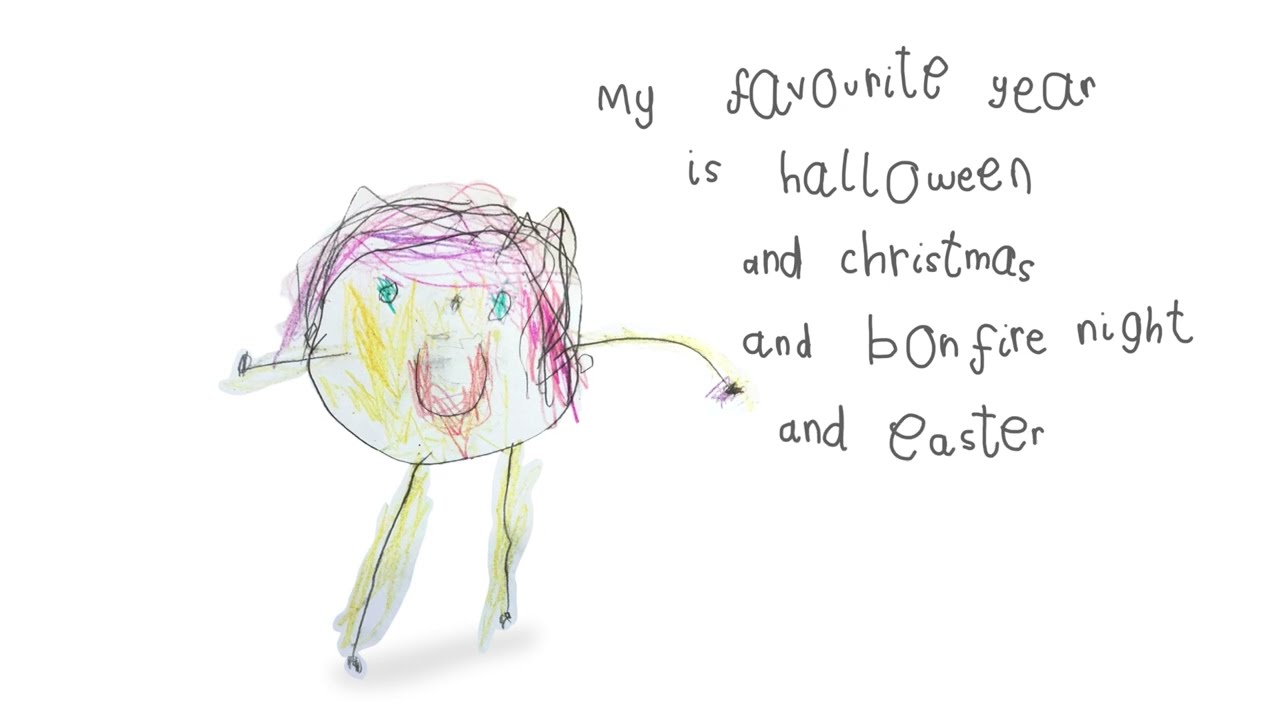 my favourite year
is halloween
and christmas
and bonfire night
and easter